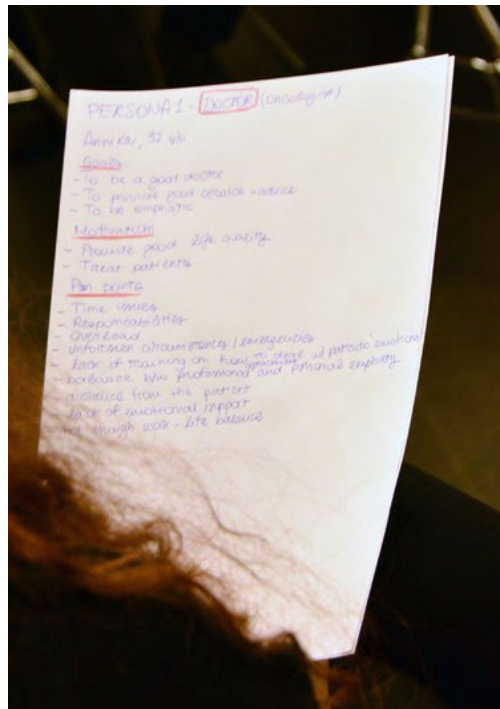 PERSONA 1 - DOCTOR (oncologist)
Annika, 32 y/o
Goals
- To be a good doctor
- To provide good service + advice
- To be emphatic
Motivation
- Provide good life quality
- Treat patients
Pain points
- Time issues
- Responsabilities
- Overload
- unforeseen circumstances / emergencies
- lack of training on how to deal w/ patients' emotions
balance b/w professional and personal empathy
distance from the patient
lack of emotional support
not enough work-life balance